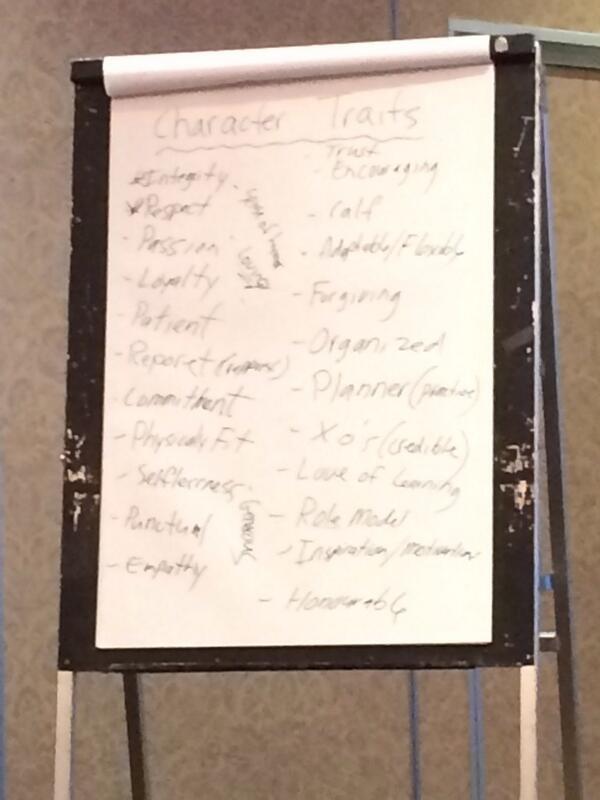 Character Traits
*Integrity
*Respect
- Passion
- Loyalty
- Patient
- Commitment
- Physically Fit
- Selflessness
- Punctual
- Empathy
Trust
- Encouraging
- Calf
- Adaptable/Flexible
- Forgiving
- Organized
- Planner (practice)
- Xo's (credible)
- Love of Learning
- Role Model
- Inspiration/motivation
- Honourable